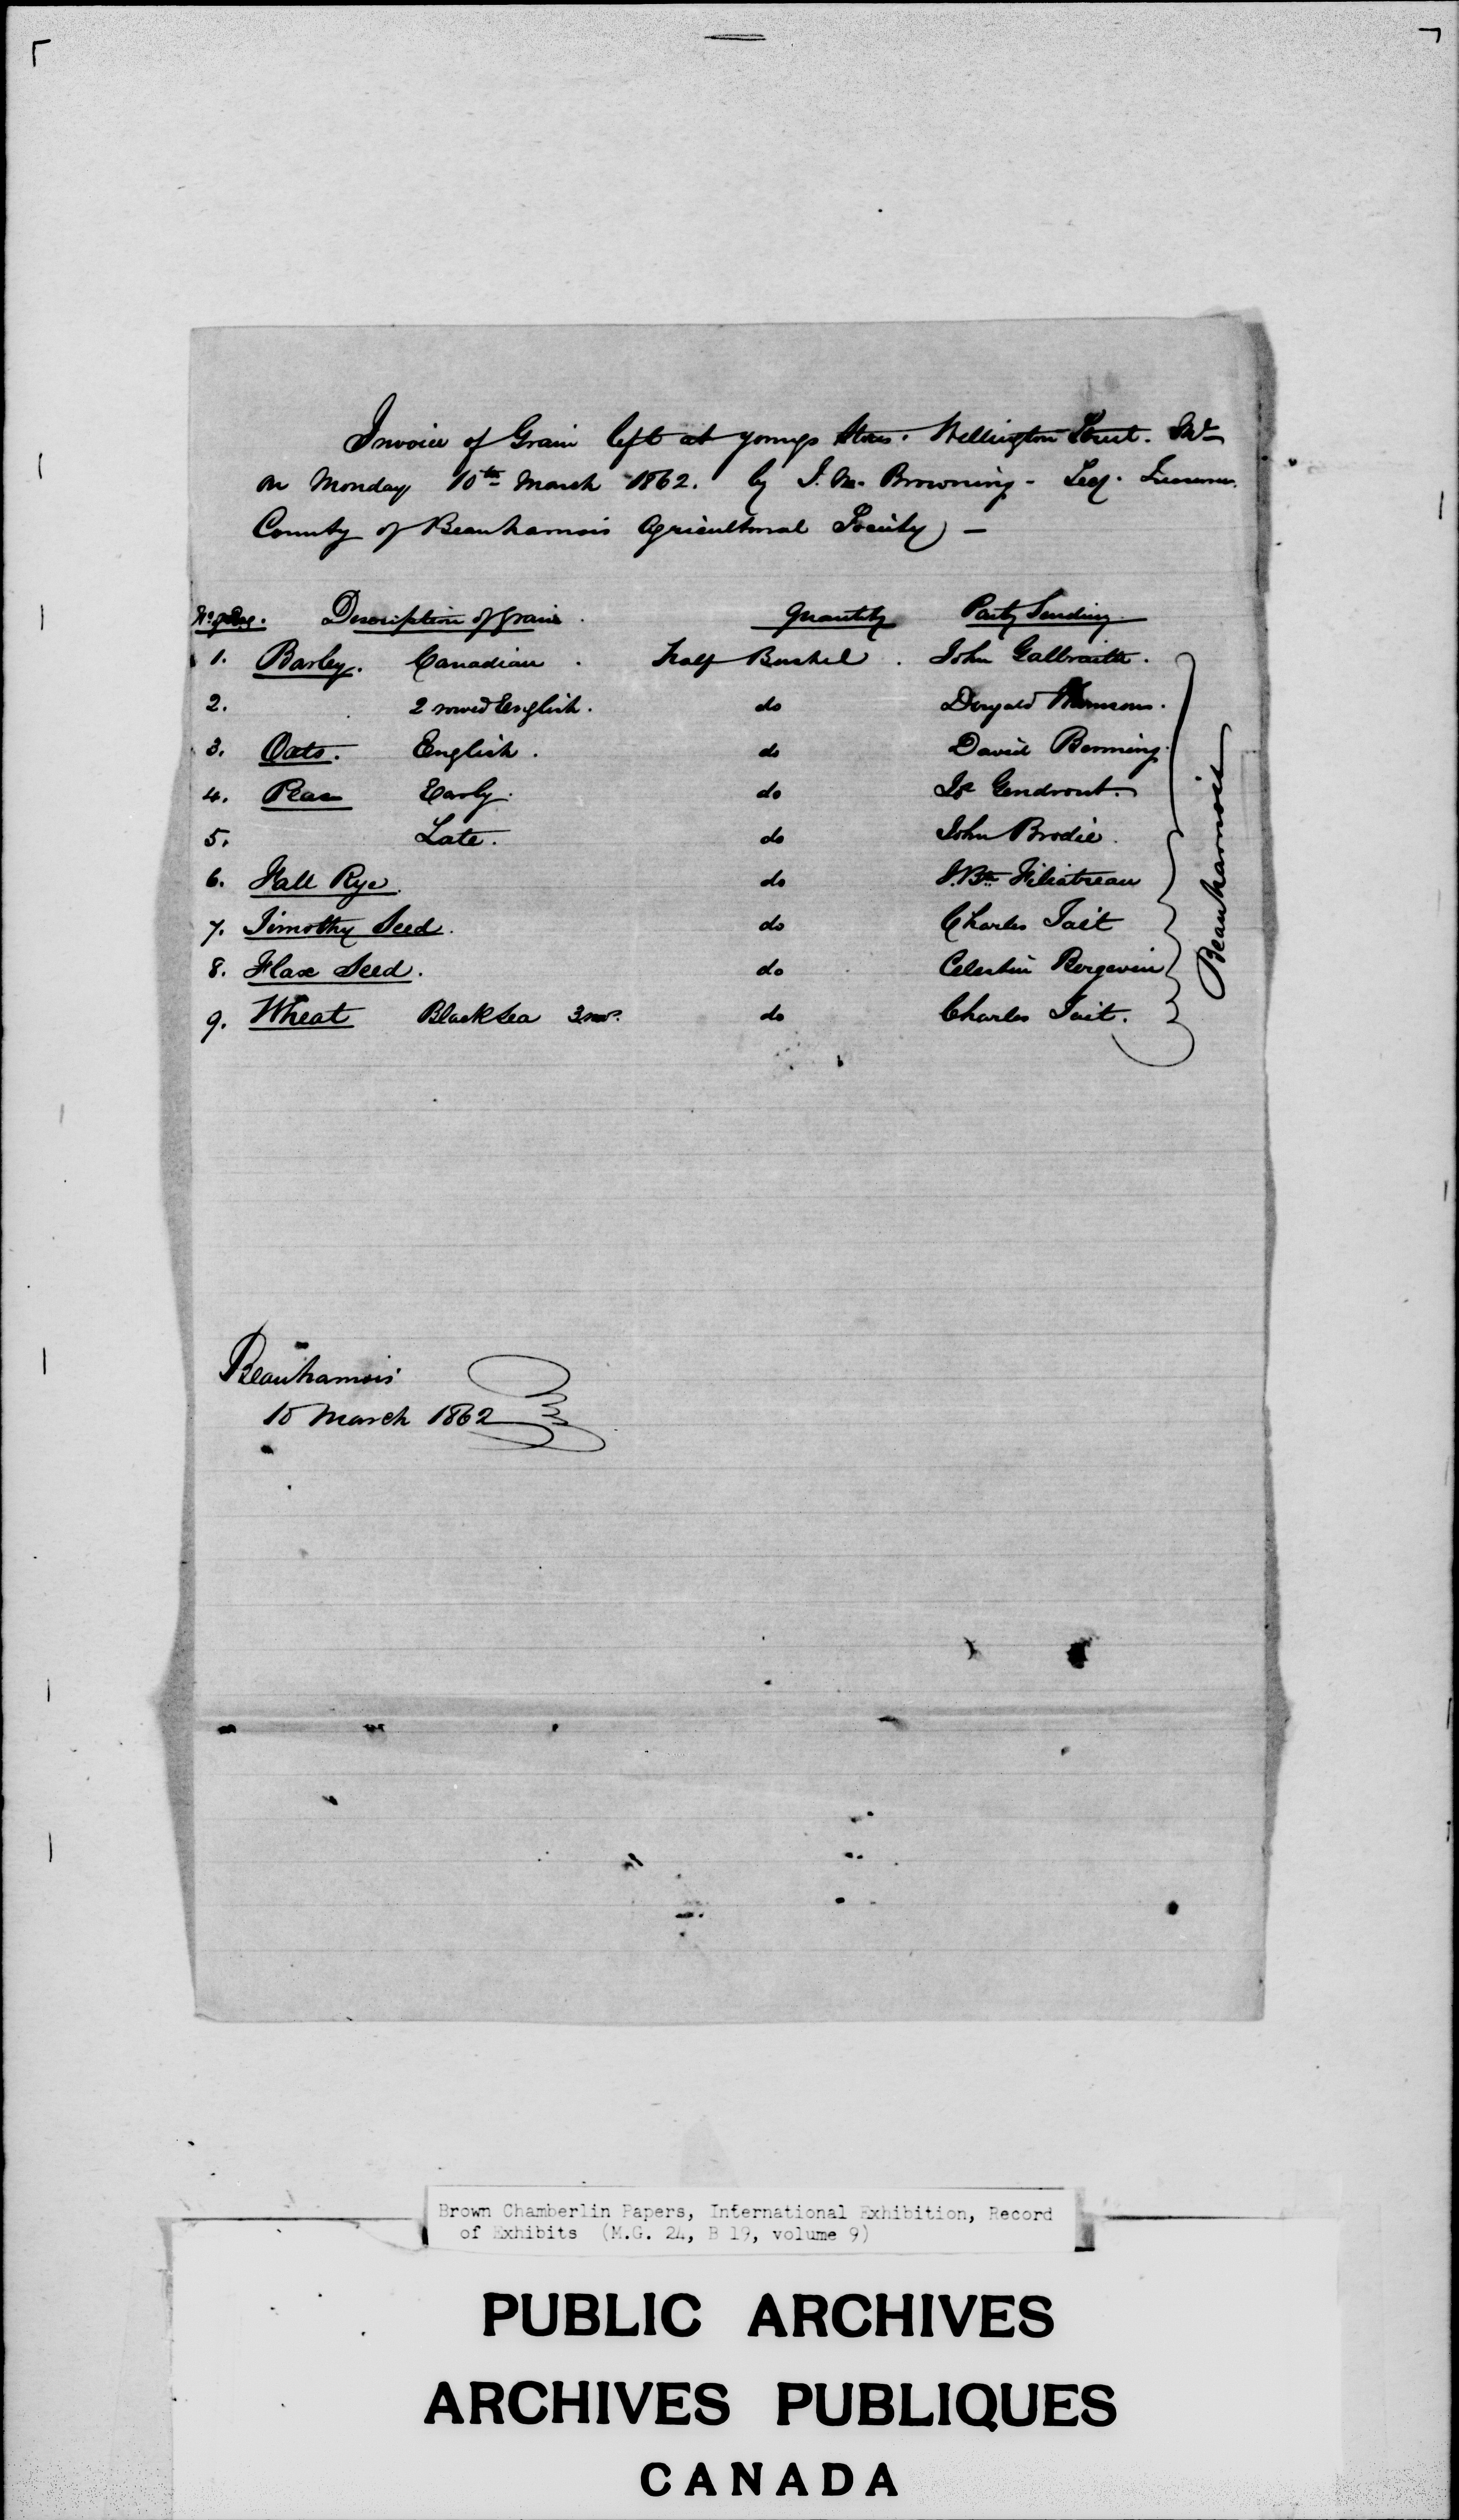 Invoice of Grain left at Youngs Stores. Wellington Street.
on Monday 10th March 1862. by J. M. Browning - Secy.
County of Beauharnois Agricultural Society -
No of Bag. Description of Grain. Quantity Party Sending.
1. Barley. Canadian. Half Bushel. John Galbraith.
2. 2 rowed English. do Dugald
3. Oats. English. do David Benning.
4. Peas Early. do Gendront.
5. Late. do John Brodie.
6. Fall Rye. do J. Bte Filiatreau
7. Timothy Seed. do Charles Tait
8. Flax Seed. do Celestin Bergevin
9. Wheat Black Sea do Charles Tait.
Beauharnois
Beauharnois
10 March 1862
Brown Chamberlin Papers, International Exhibition, Record
of Exhibits (M.G. 24, B 19, volume 9)
PUBLIC ARCHIVES
ARCHIVES PUBLIQUES
CANADA